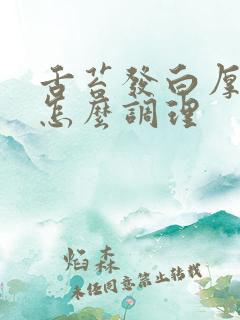 舌苔發白厚
怎麼調理
焰森
未经同意禁止转载